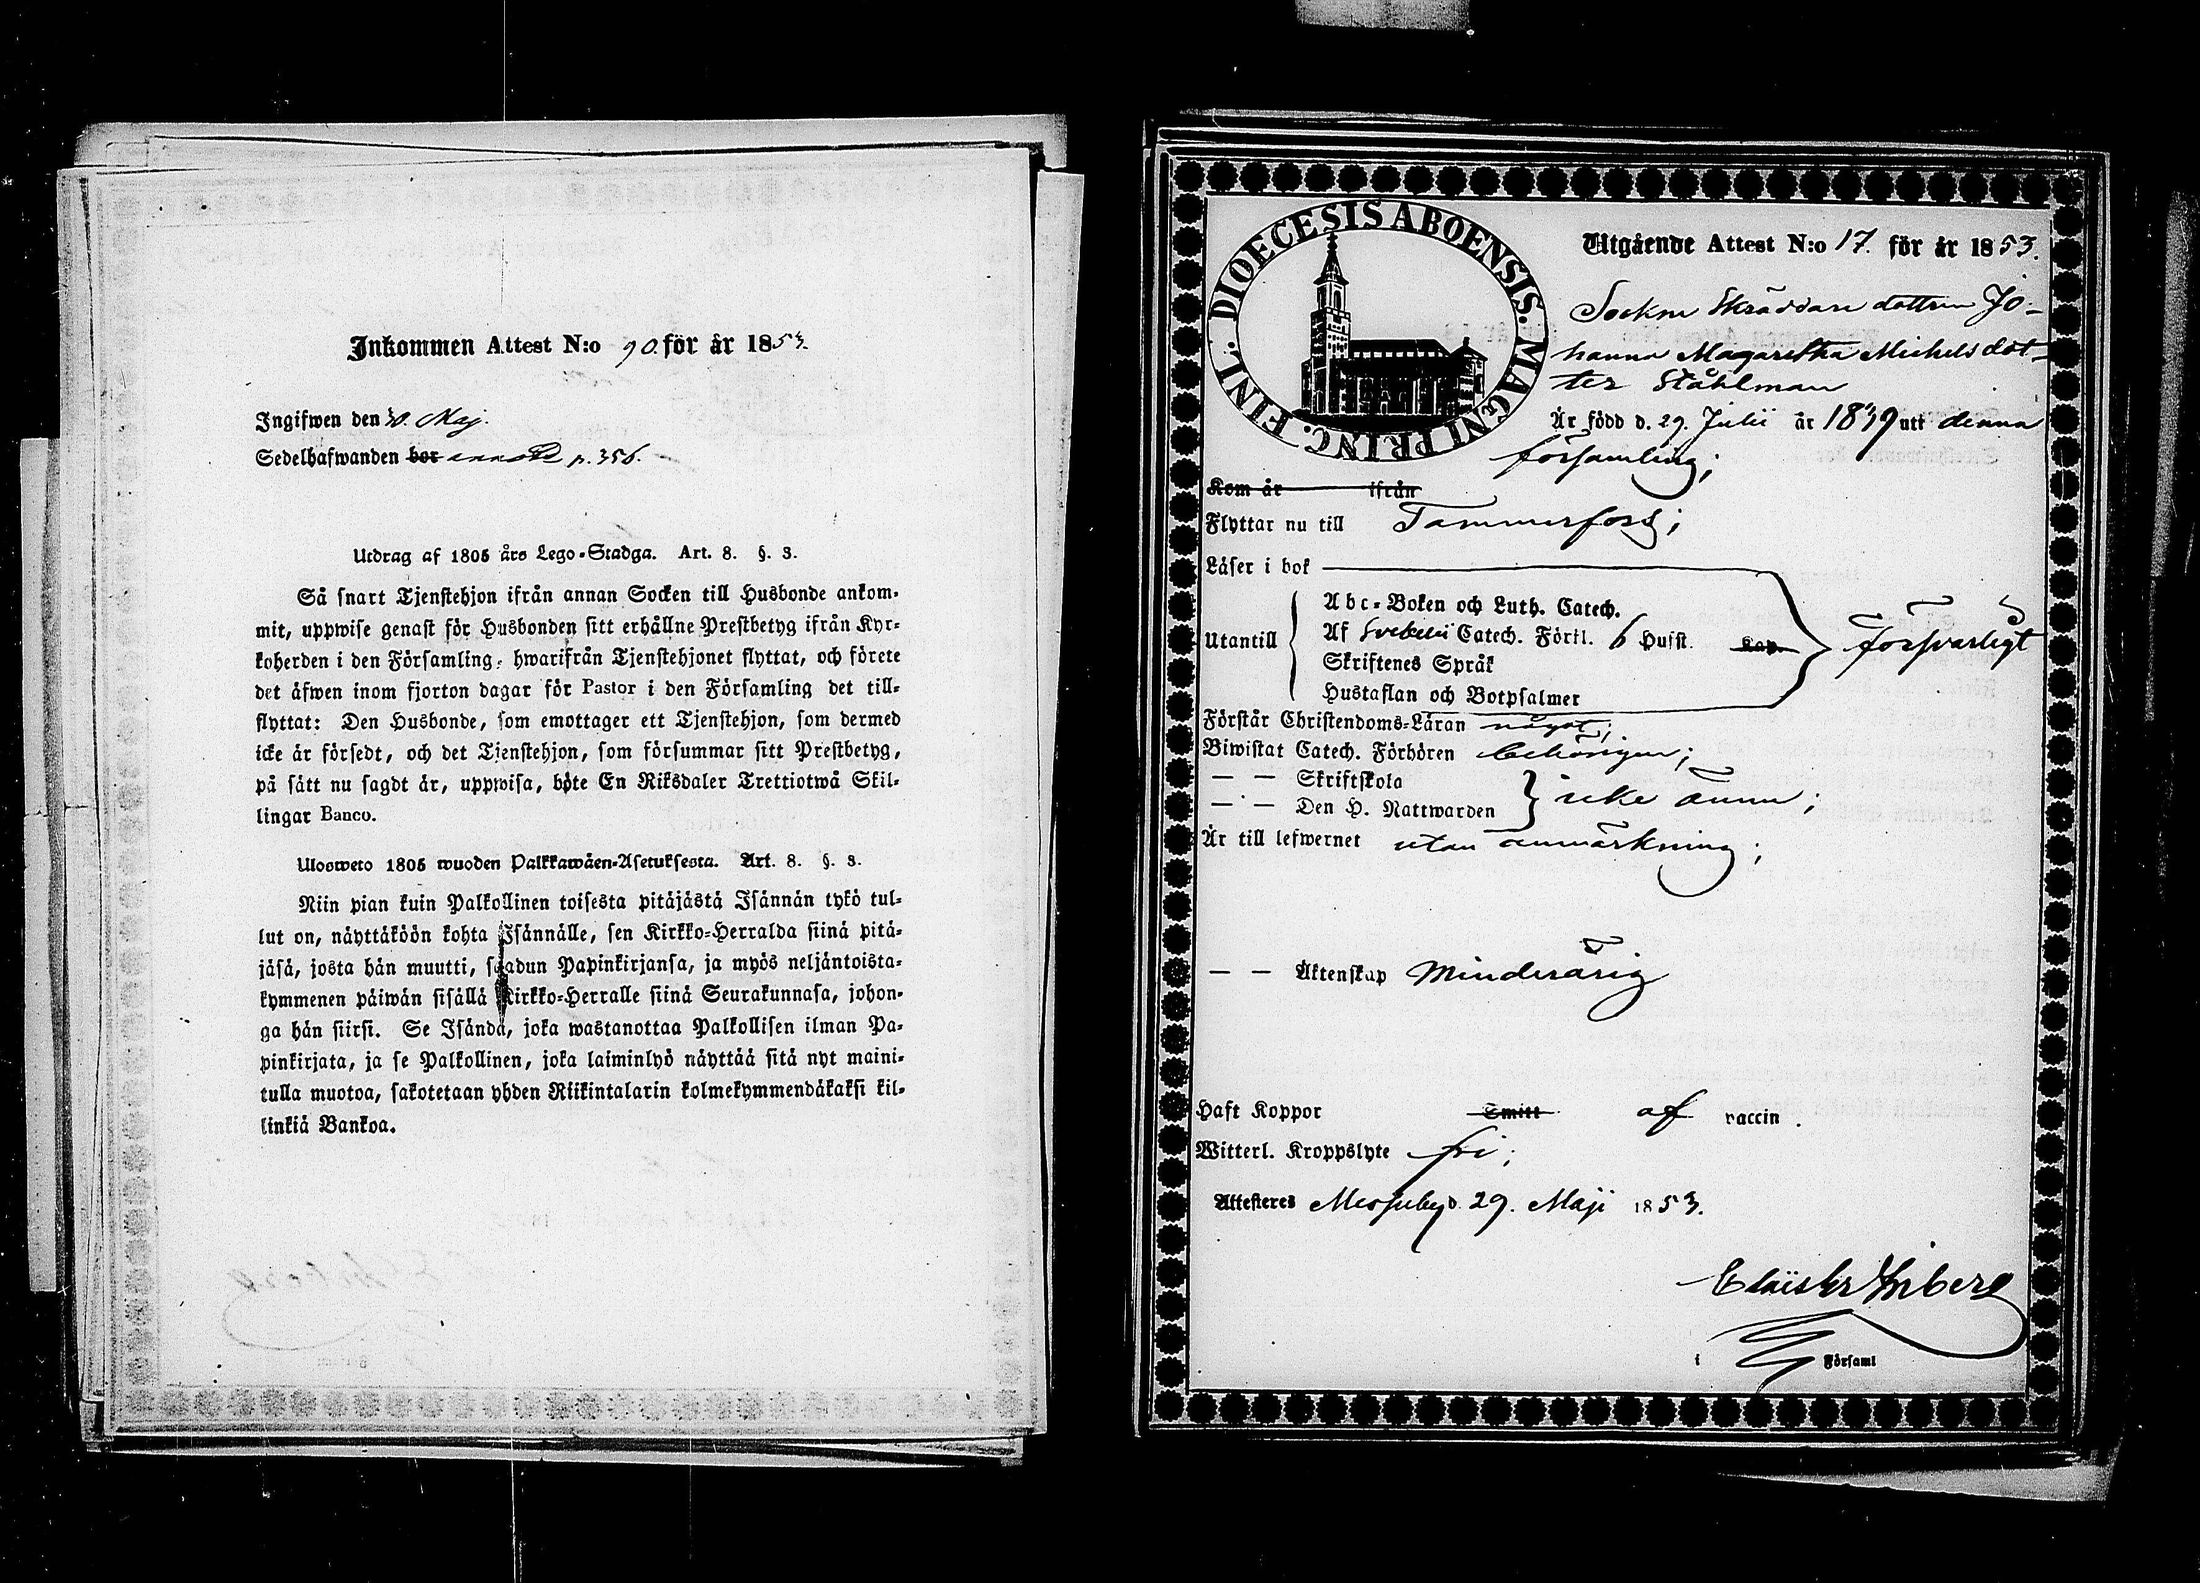 Inkommen Attest N:o 90. för år 1853.
Ingifwen den 30. Maj.
Sedelhafwanden bor p. 356.
Utdrag af 1805 års Lego-Stadga. Art. 8. §. 3.
Så snart Tjenstehjon ifrån annan Socken till Husbonde ankom-
mit, uppwise genast för Husbonden sitt erhållne Prestbetyg ifrån Kyr-
koherden i den Församling, hwarifrån Tjenstehjonet flyttat, och förete
det äfwen inom fjorton dagar för Pastor i den Församling det till-
flyttat: Den Husbonde, som emottager ett Tjenstehjon, som dermed
icke är försedt, och det Tjenstehjon, som försummar sitt Prestbetyg,
på sätt nu sagdt är, uppwisa, böte En Riksdaler Trettiotwå Skil-
lingar Banco.
Ulosweto 1805 wuoden Palkkawäen-Asetuksesta. Art. 8. §. 3.
Niin pian kuin Palkollinen toisesta pitäjästä Isännän tykö tul-
lut on, näyttäköön kohta Isännälle, sen Kirkko-Herralda siinä pitä-
jäsä, josta hän muutti, saadun Papinkirjansa, ja myös neljäntoista-
kymmenen päiwän sisällä Kirkko-Herralle siinä Seurakunnasa, johon-
ga hän siirsi. Se Isändä, joka wastanottaa Palkollisen ilman Pa-
pinkirjata, ja se Palkollinen, joka laiminlyö näyttää sitä nyt maini-
tulla muotoa, sakotetaan yhden Riikintalarin kolmekymmendäkaksi kil-
linkiä Bankoa.
DIOECESIS ABOENSIS. MAGNI PRINC. FINL.
Utgående Attest N:o 17. för år 1853.
Sockne Skräddare dottren Jo-
hanna Magaretha Michelsdot-
ter Ståhlman
Är född d. 29. Julii år 1839 uti denna
församling;
Kom år ifrån
Flyttar nu till Tammerfors;
Läser i bok
Abc-Boken och Luth. Catech.
Utantill Af Svebelii Catech. Förkl. 6 Husst. Kap. försvarligt
Skriftenes Språk
Hustaflan och Botpsalmer
Förstår Christendoms-Läran något;
Biwistat Catech. Förhören behörigen;
— — Skriftskola
— — Den H. Nattwarden icke ännu;
Är till lefwernet utan anmärkning;
— — Äktenskap Minderårig
Haft Koppor Smitt af vaccin.
Witterl. Kroppslyte fri;
Attesteres Messuby d. 29. Maji 1853.
i Församl